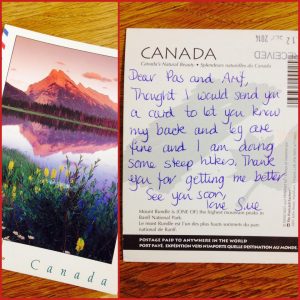 Canada
CANADA
Canada's Natural Beauty • Splendeurs naturelles du Canada
RECEIVED
12 2014
Dear Pas and Amy,
Thought I would send you
a card to let you know
my back and leg are
fine and I am doing
some steep hikes. Thank
you for getting me better.
See you soon,
love Sue
Mount Rundle is (ONE OF) the highest mountain peaks in
Banff National Park.
Le mont Rundle est l'un des plus hauts sommets du parc
national de Banff.
POSTAGE PAID TO ANYWHERE IN THE WORLD
PORT PAYÉ. EXPÉDITION VERS N'IMPORTE QUELLE DESTINATION AU MONDE.